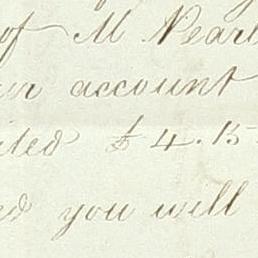 of M Pearl
account
ited $4.15
you will